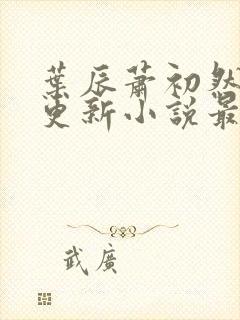 葉辰蕭初然
更新小說最
武廣